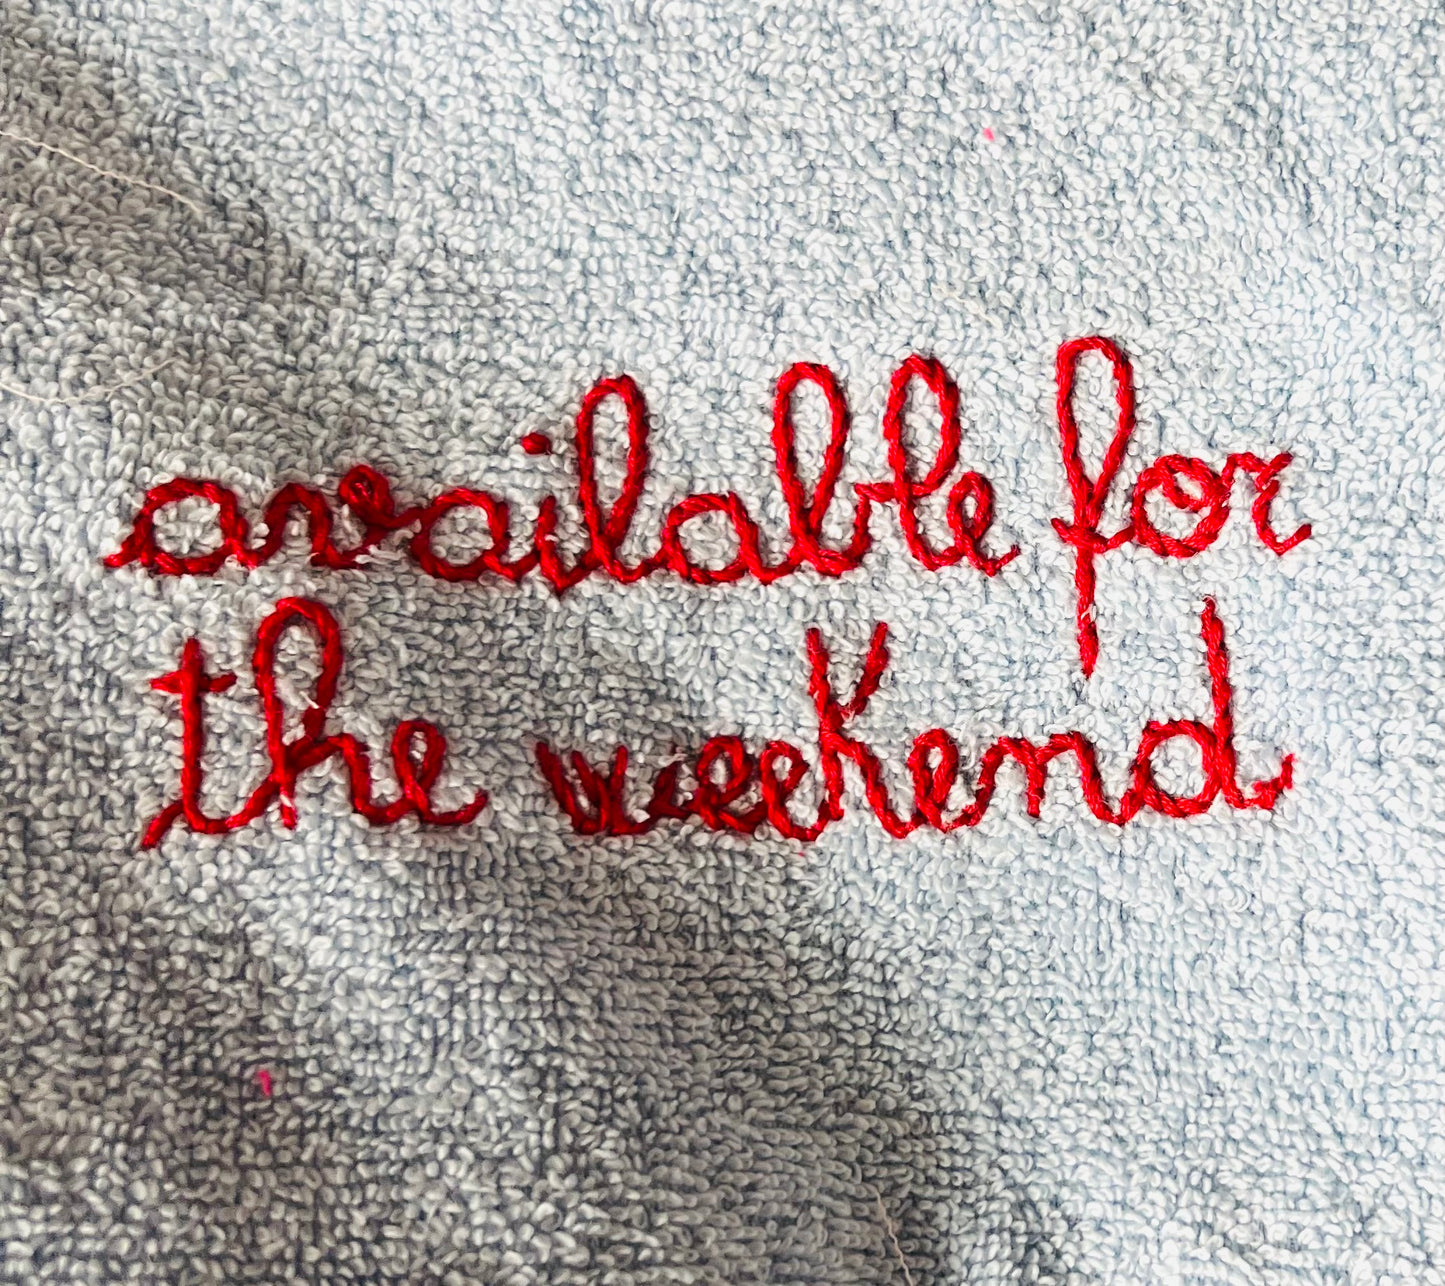 available for
the weekend